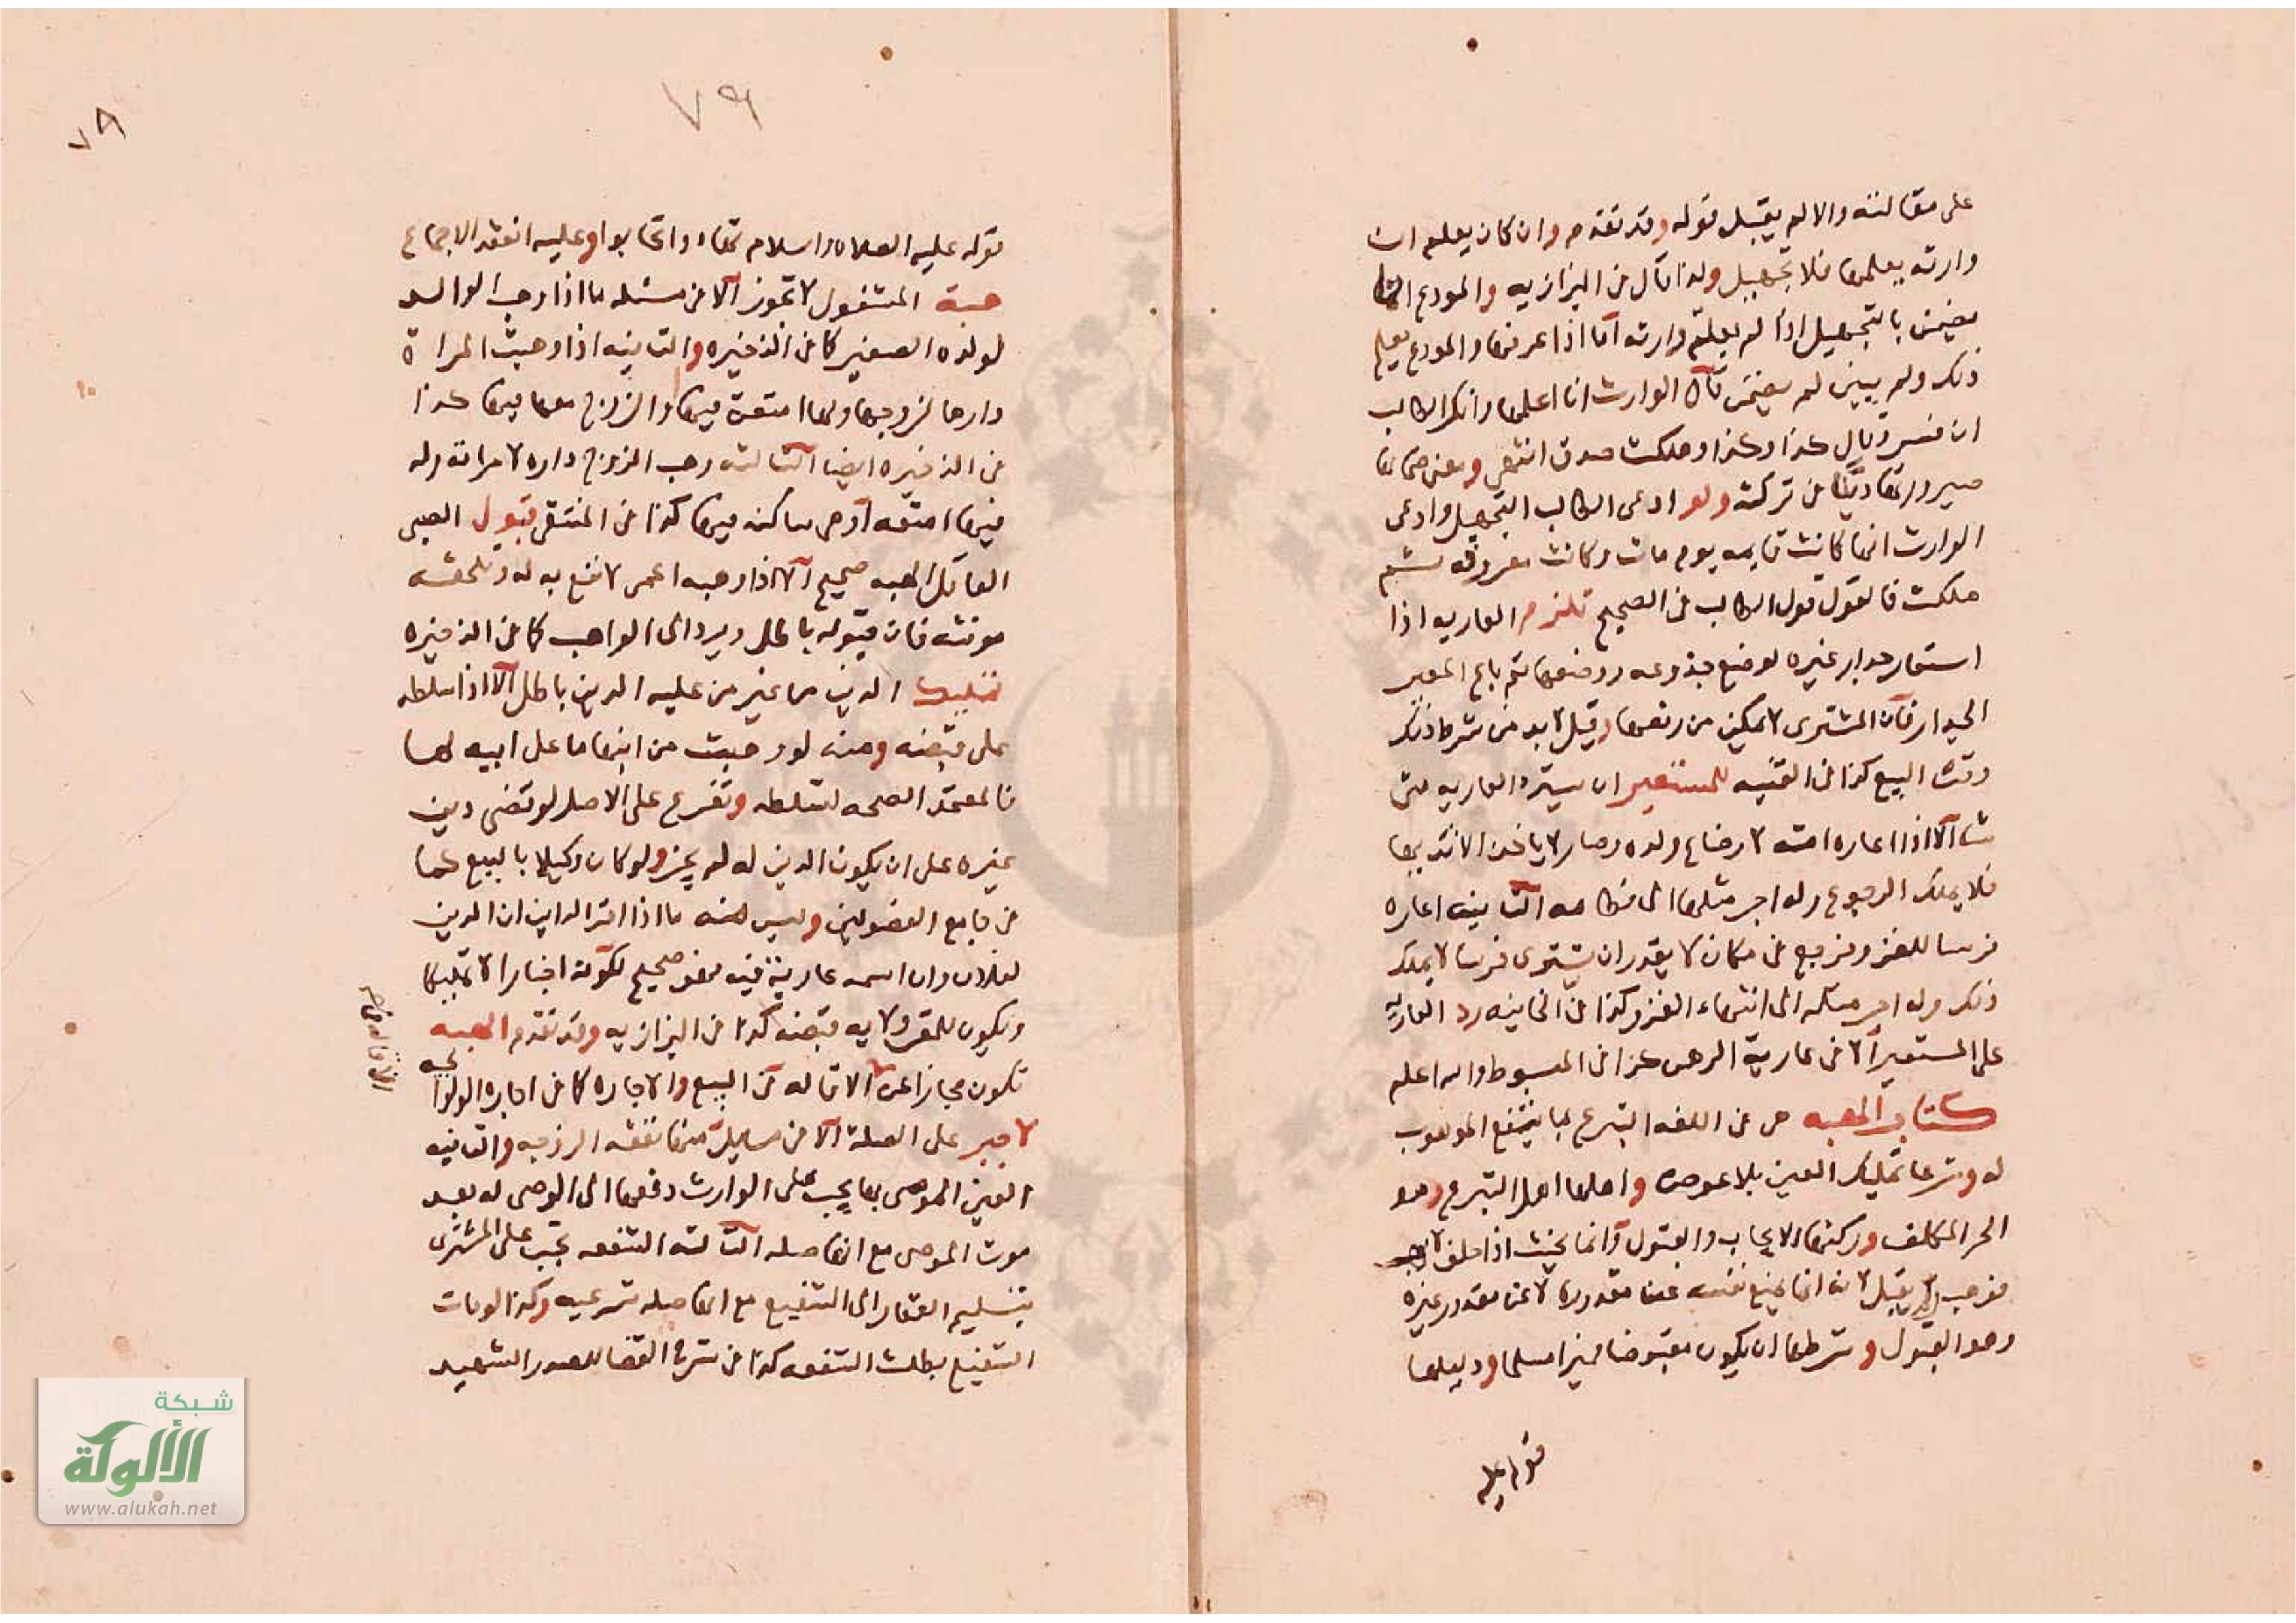 على مقالته والا لم يقبل قوله وقد تقدم وان كان يعلم ان
وارثه يعلمها فلا تجهيل ولذا قال في البزازيه والمودع انما
يضمن بالتجهيل اذا لم يعلم وارثه اما اذا عرفها والمودع يعلم
ذلك ولم يبين لم يضمن قال الوارث انا اعلمها وانكر الطالب
ان فسر وقال كذا وكذا وهلكت صدق انتهى ومعنى ضمانها
صيرورتها دينا في تركته ولو ادعى الطالب التجهيل وادعى
الوارث انها كانت قايمه يوم مات وكانت معروفه ثم
هلكت فالقول قول الطالب في الصحيح تلزم العاريه اذا
استعار جدار غيره لوضع جذوعه ووضعها ثم باع المعير
الجدار فان المشترى لا يمكن من رفعها وقيل لا بد من شرط ذلك
وقت البيع كذا في القنيه للمستعير ان يسترد العاريه متى
شا الا اذا اعاره امته لارضاع ولده وصار لا ياخذ الا ثديها
فلا يملك الرجوع وله اجر مثلها الى فطامه الثانيه اعاره
فرسا للغزو فرجع في مكان لا يقدر ان يشترى فرسا لا يملك
ذلك وله اجر مثله الى انتهاء الغزو كذا في الخانيه رد العاريه
على المستعير الا في عارية الرهن كذا في المبسوط والله اعلم
كتاب الهبه هى في اللغه التبرع بما ينتفع الموهوب
له وشرعا تمليك العين بلا عوض واهلها اهل التبرع وهو
الحر المكلف وركنها الايجاب والقبول وانما يحنث اذا حلف لا يهب
فوهب ولم يقبل لانه انما يمنع نفسه عما مقدوره لا عن مقدور غيره
وهو القبول وشرطها ان يكون مقبوضا مميزا مسلما ودليلها
قوله عليه
٧٩
٧٩
قوله عليه الصلاه والسلام تهادوا تحابوا وعليه انعقد الاجماع
هبة المشغول لا تجوز الا في مسئله ما اذا وهب الوالد
لولده الصغير كما في الذخيره والثانيه اذا وهبت المراة
دارها لزوجها ولها امتعة فيها والزوج معها فيها كذا
في الذخيره ايضا الثالثه وهب الزوج داره لامراته وله
فيها امتعه او هى ساكنه فيها كذا في المنتقى قبول الصبى
العاقل الهبه صحيح الا اذا وهبه اعمى لا نفع به له وتلحقه
مونته فان قبوله باطل ويرد الى الواهب كما في الذخيره
تمليك الدين من غير من عليه الدين باطل الا اذا سلطه
على قبضه ومنه لو وهبت من ابنها ما على ابيه لها
فالمعتمد الصحه لتسلطه وتفرع على الاصل لو قضى دين
غيره على ان يكون الدين له لم يجز ولو كان وكيلا بالبيع كما
في جامع الفصولين وليس منه ما اذا اقر الداين ان الدين
لفلان وان اسمه عارية فيه فهو صحيح لكونه اخبارا لا تمليكا
ويكون للمقر ولايه قبضه كذا في البزازيه وقد تقدم الهبه
تكون مجازا عن الاقاله في البيع والاجاره كما في اجارة الولوالجيه
لا جبر على الصلة الا في مسايل منها نفقه الزوجه والثانيه
العين الموصى بها يجب على الوارث دفعها الى الموصى له بعد
موت الموصى مع انها صله الثالثه الشفعه تجب على المشترى
تسليم العقار الى الشفيع مع انها صله شرعيه وكذا لو مات
الشفيع بطلت الشفعه كذا في شرح القضا للصدر الشهيد
شبكة
الألوكة
www.alukah.net